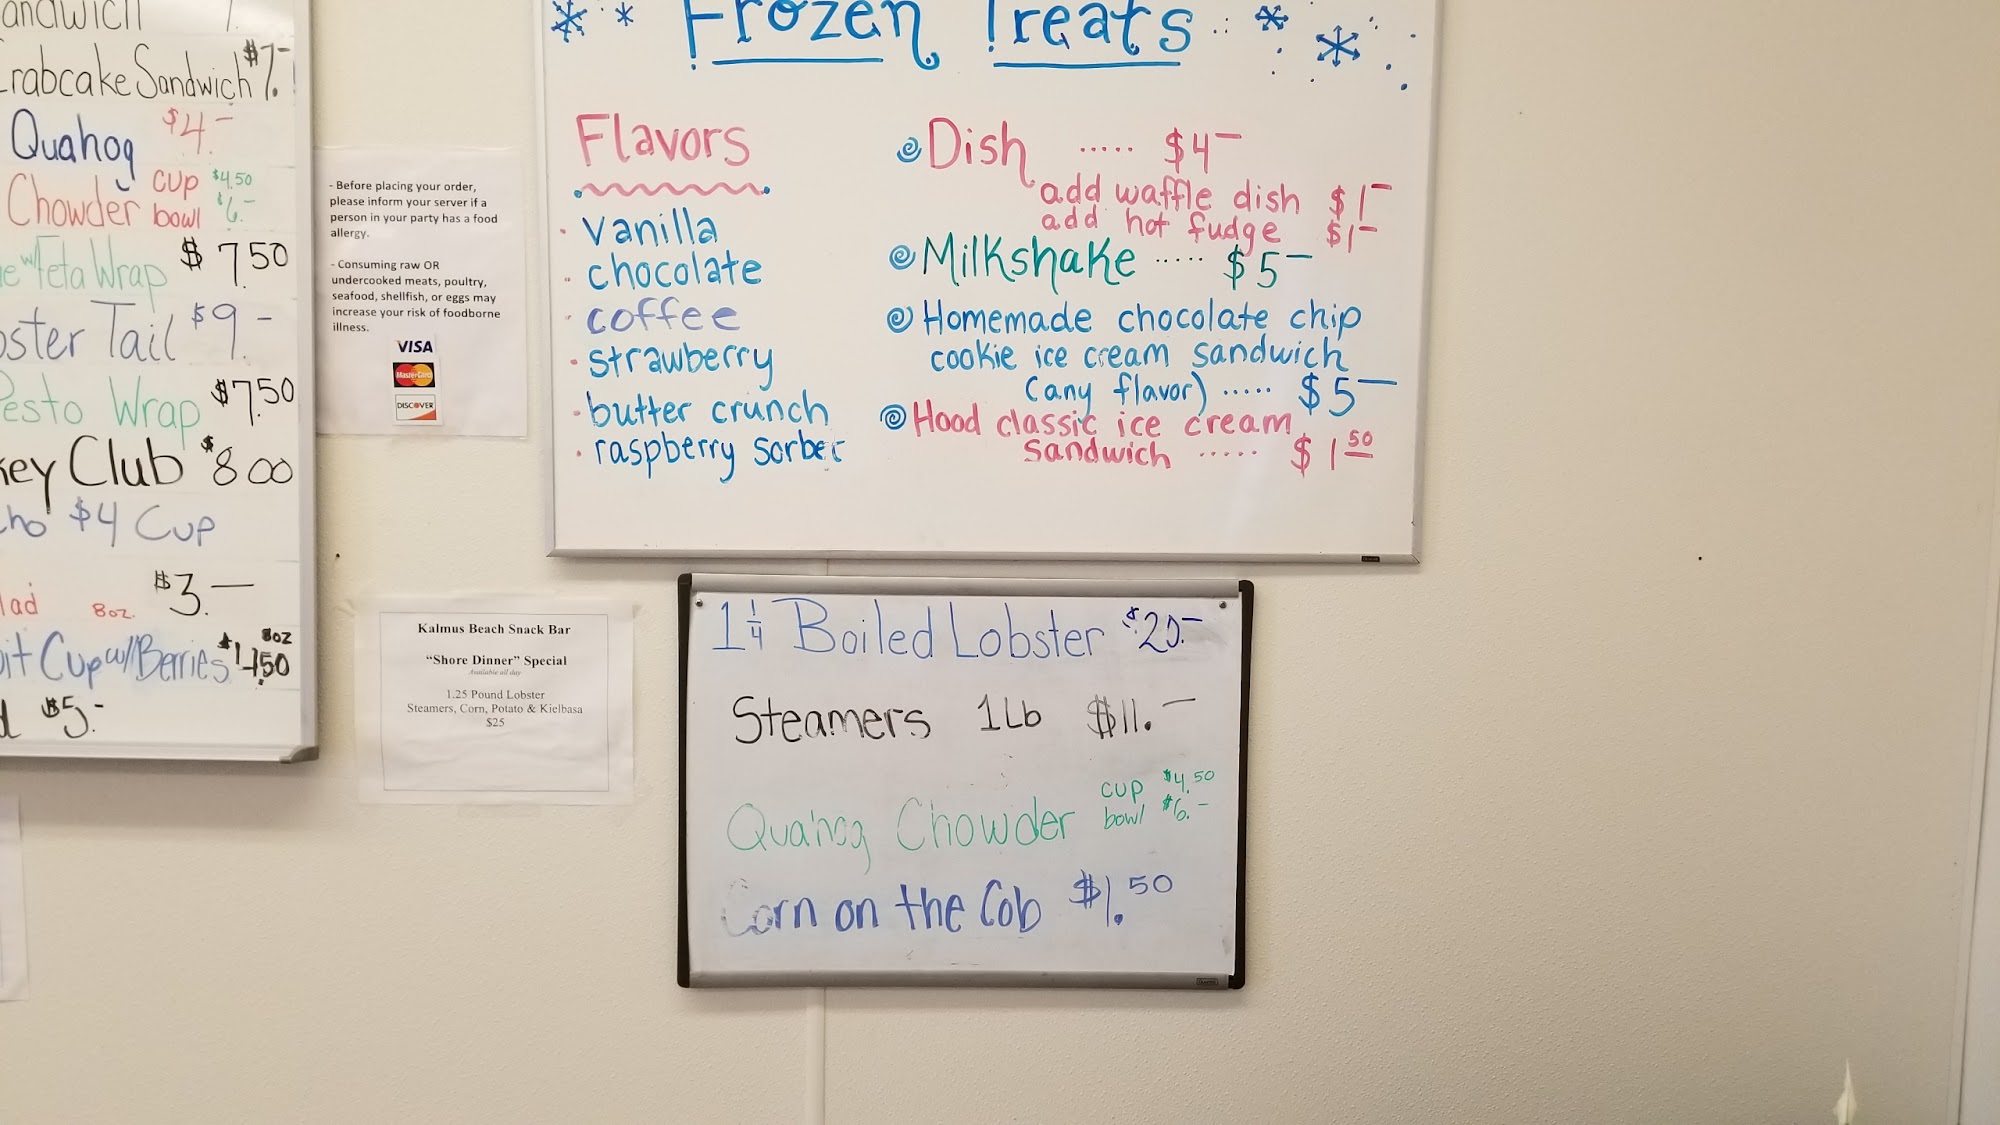 Sandwich 7.
Crabcake Sandwich $7.-
Quahog $4.-
Chowder cup $4.50
bowl $6.-
w/ Feta Wrap $7.50
Tail $9.-
Pesto Wrap $7.50
Club $8.00
$4 Cup
8oz. $3.—
Cup w/ Berries 8oz
$5.-
- Before placing your order,
please inform your server if a
person in your party has a food
allergy.
- Consuming raw OR
undercooked meats, poultry,
seafood, shellfish, or eggs may
increase your risk of foodborne
illness.
VISA
MasterCard
DISCOVER
Kalmus Beach Snack Bar
“Shore Dinner” Special
Available all day
1.25 Pound Lobster
Steamers, Corn, Potato & Kielbasa
$25
Frozen Treats
Flavors
· vanilla
· chocolate
· coffee
· strawberry
· butter crunch
· raspberry sorbet
Dish ..... $4—
add waffle dish $1—
add hot fudge $1—
Milkshake ..... $5—
Homemade chocolate chip
cookie ice cream sandwich
(any flavor) ..... $5—
Hood classic ice cream
sandwich ..... $1 50
1 1/4 Boiled Lobster $20.-
Steamers 1Lb $11.—
Quahog Chowder cup $4.50
bowl $6.-
Corn on the Cob $1.50